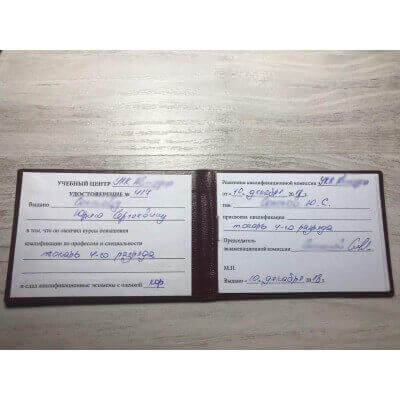 УЧЕБНЫЙ ЦЕНТР УКК
УДОСТОВЕРЕНИЕ № 414
Выдано
Юрию Сергеевичу
в том, что он окончил курсы повышения
квалификации по профессии и специальности
токарь 4-го разряда
и сдал квалификационные экзамены с оценкой хор.
Решением квалификационной комиссии УКК
от «10» декабря 2018 г.
тов. Ю.С.
присвоена квалификация
токарь 4-го разряда
Председатель
экзаменационной комиссии
М.П.
Выдано «10» декабря 2018 г.